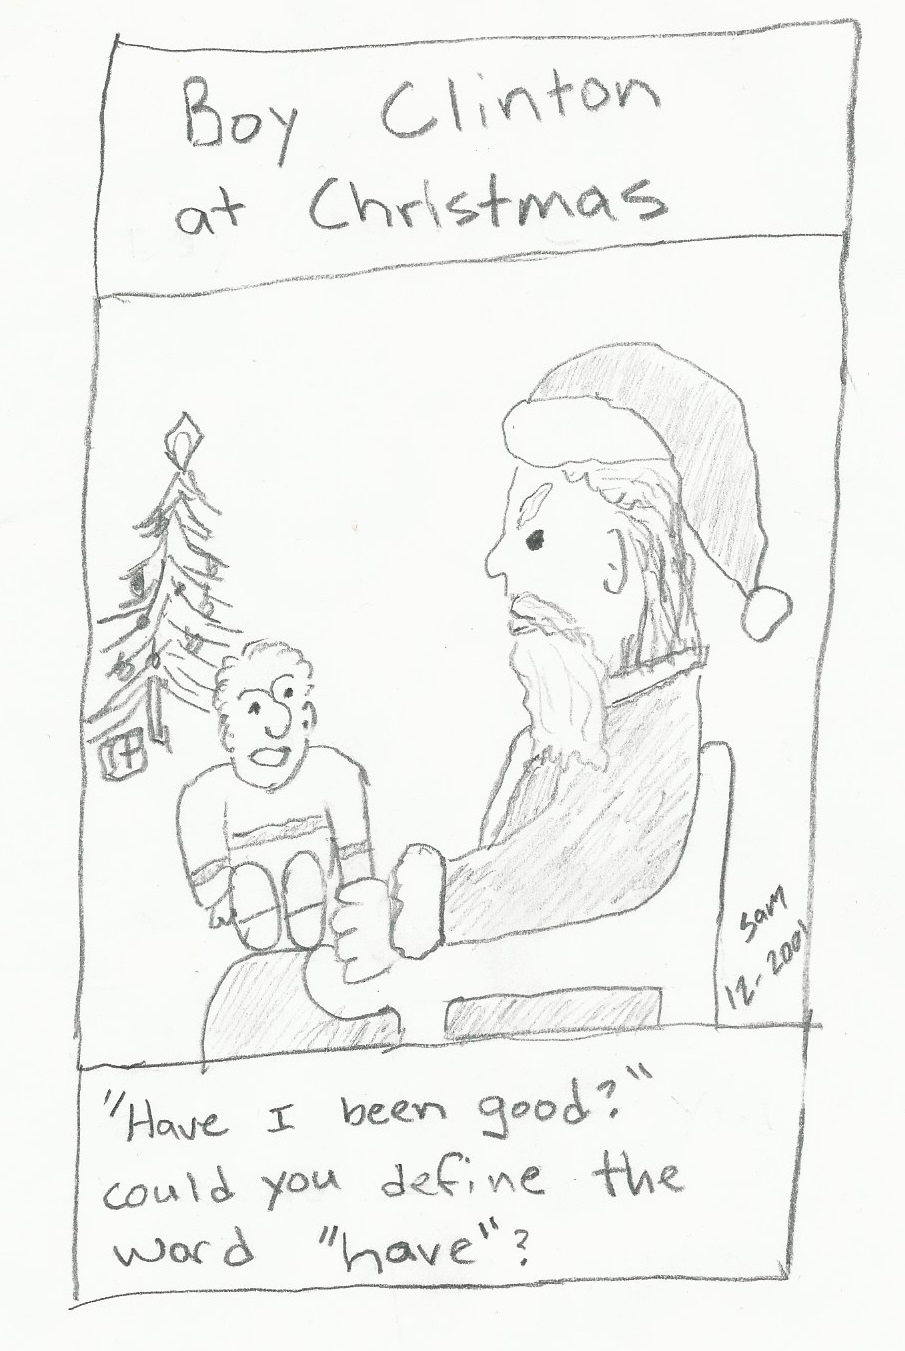 Boy Clinton
at Christmas
Sam
12-2001
"Have I been good?"
could you define the
word "have"?